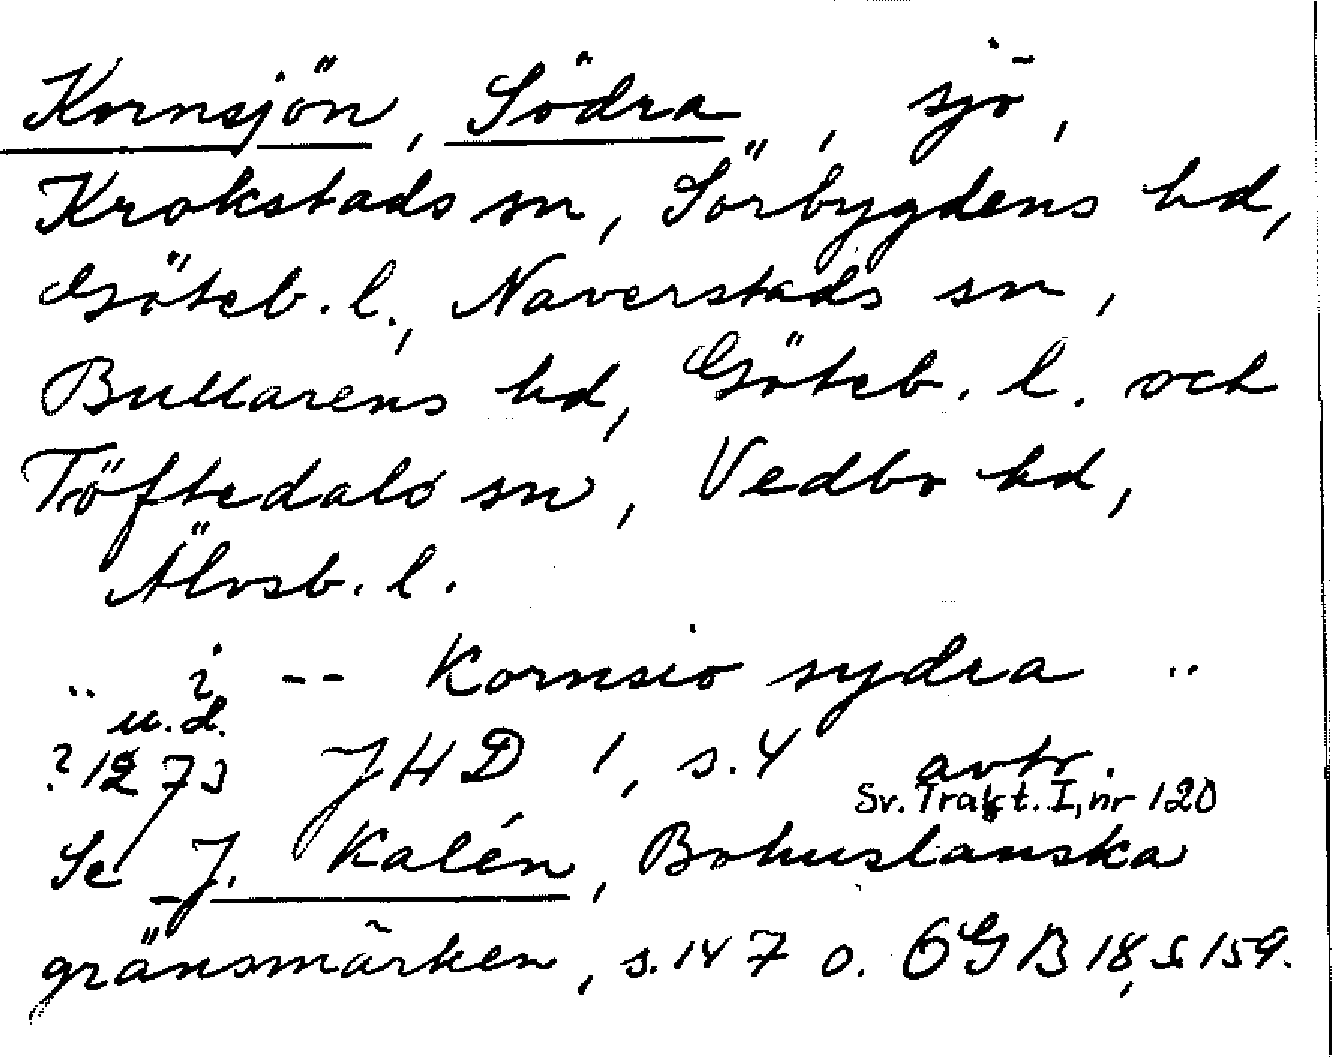 Kornsjön, Södra, sjö,
Krokstads sn, Sörbygdens hd,
Göteb. l., Naverstads sn,
Bullarens hd, Göteb. l. och
Töftedals sn, Vedbo hd,
Älvsb. l.
.. i -- Kornsio sydra ..
u.d.
?1273 JHD 1, s.4 avtr.
Sv. Trakt. I, nr 120
Se J. Kalén, Bohuslänska
gränsmärken, s.147 o. OGB 18, s 159.